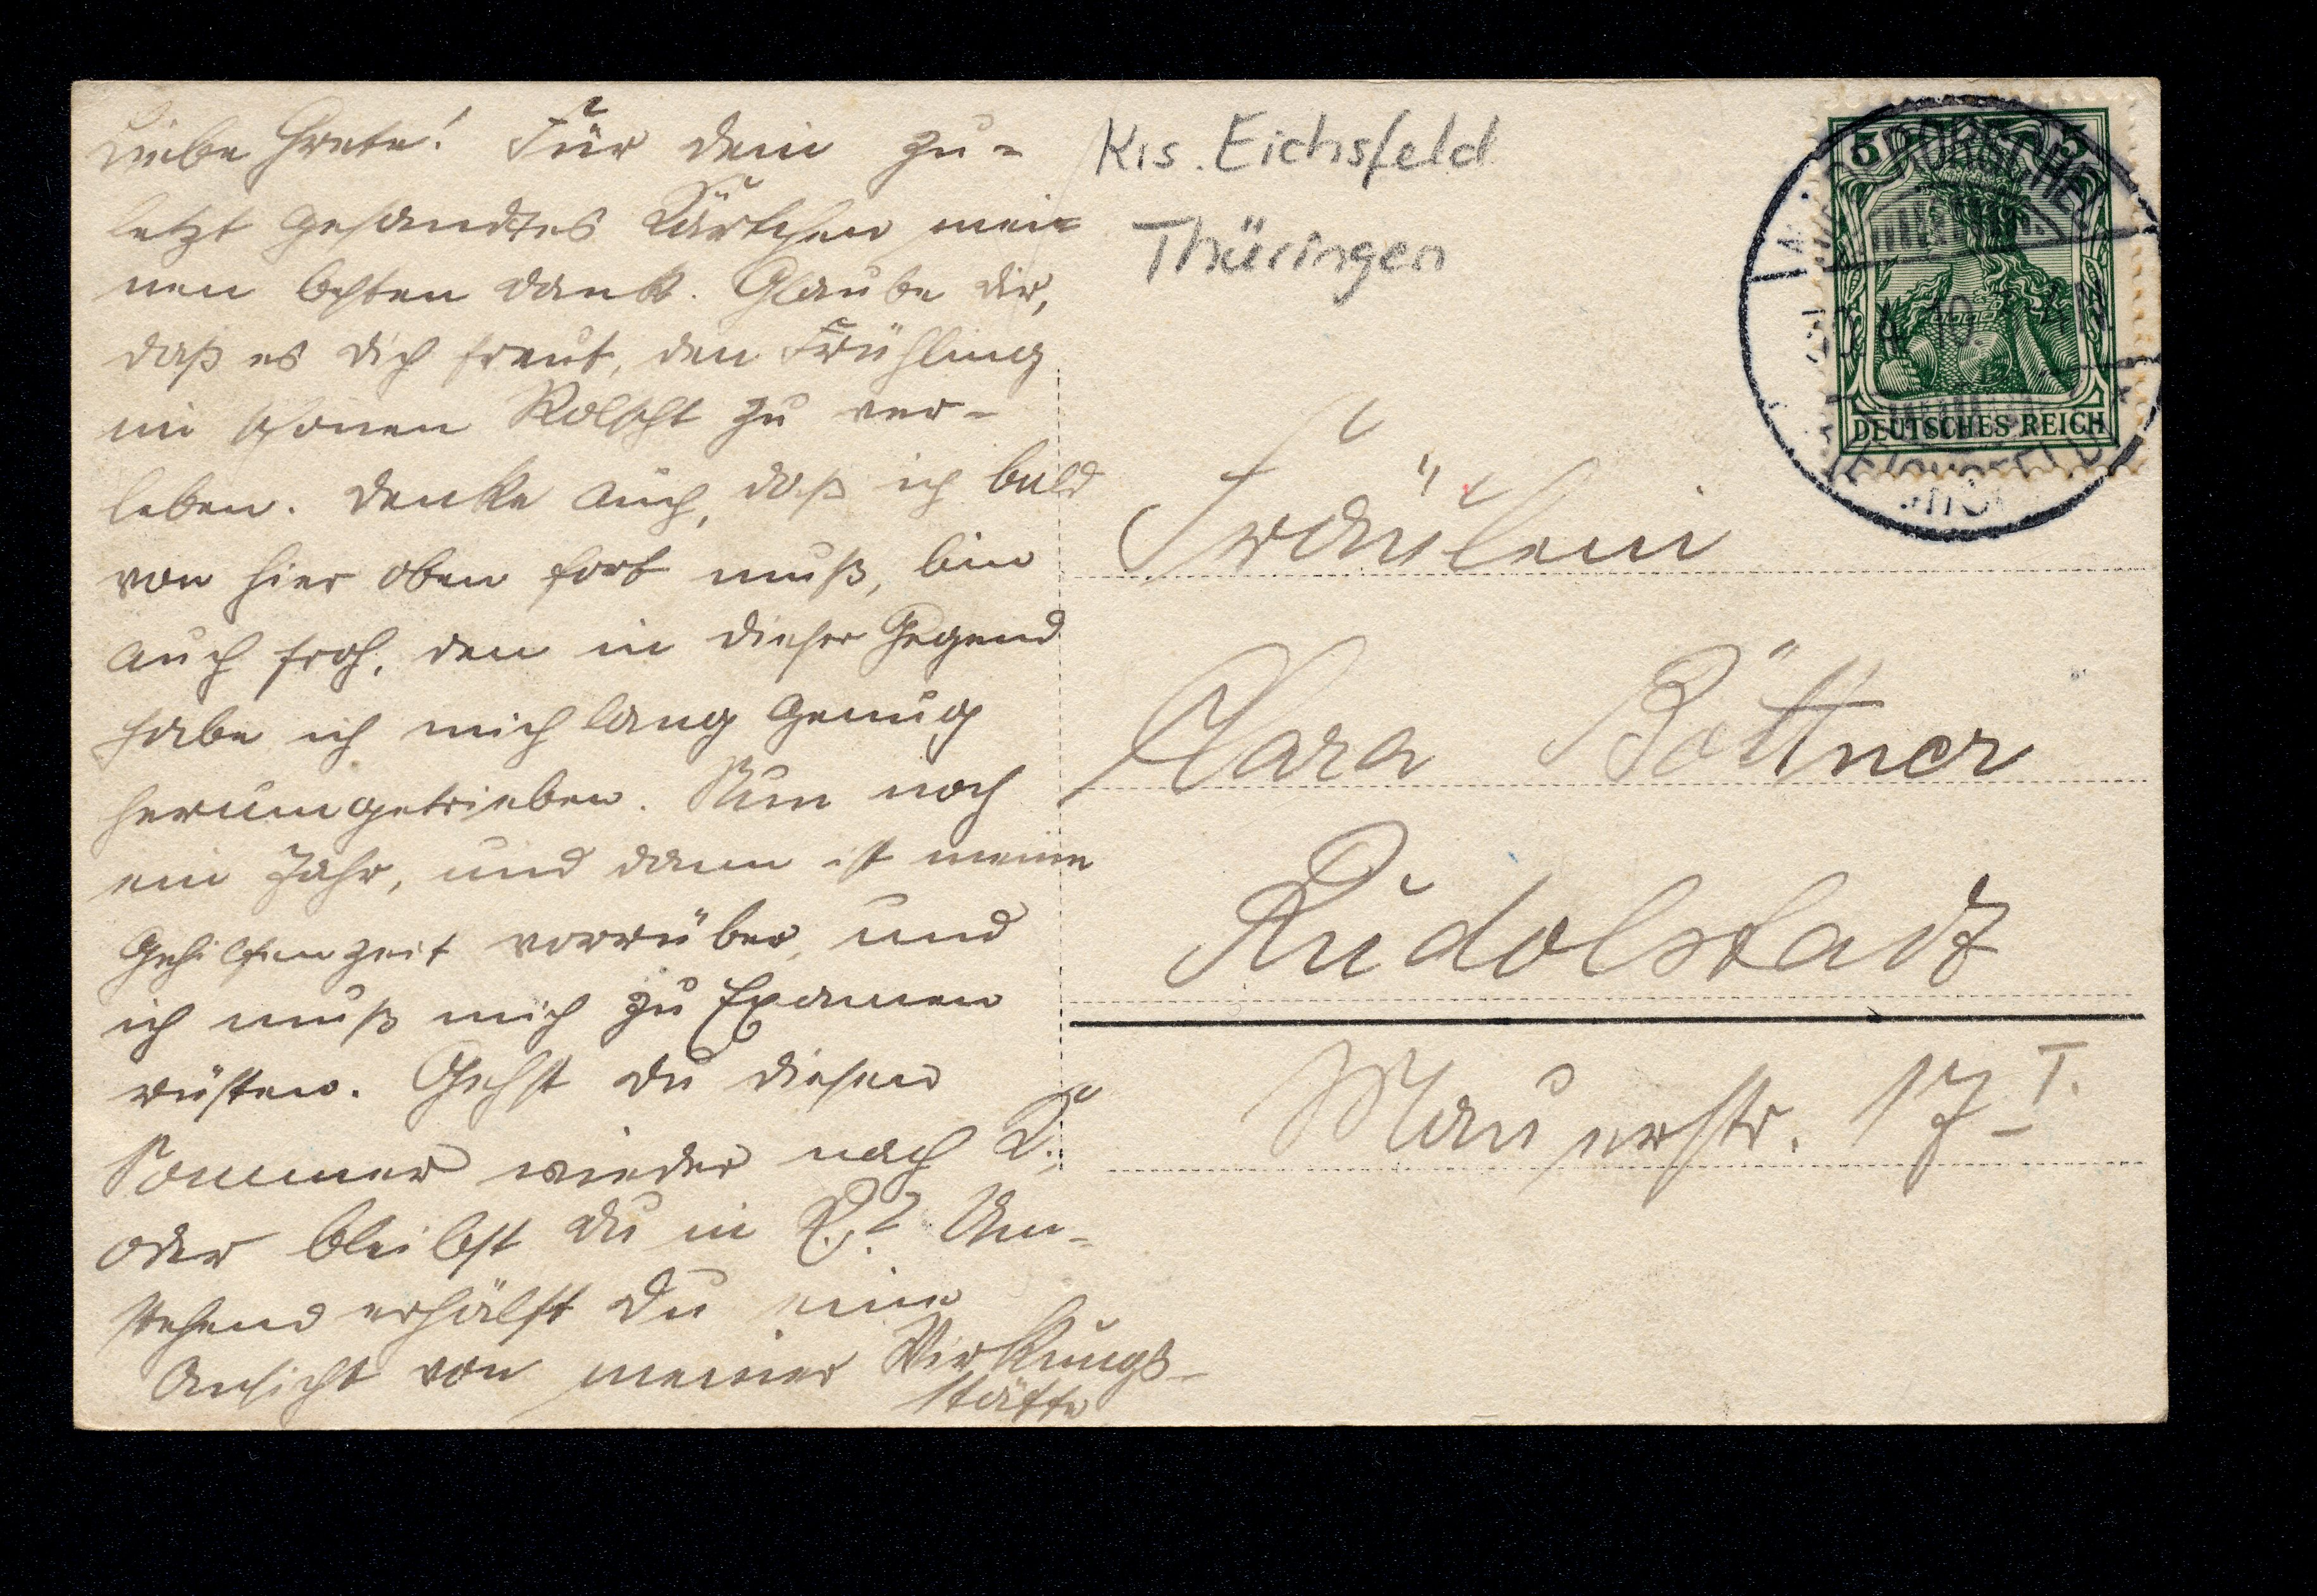 Liebe Grete! Für dein zu-
letzt gesandtes Kärtchen mei-
nen besten Dank. Glaube dir,
daß es dich freut, den Frühling
im schönen zu ver-
leben. Denke auch, daß ich bald
von hier oben fort muß, bin
auch froh, den in dieser Gegend
habe ich mich lang genug
herumgetrieben. Nun noch
ein Jahr, und dann ist meine
Gehilfenzeit vorrüber, und
ich muß mich zu Examen
rüsten. Gehst du diesen
Sommer wieder nach K.
oder bleibst du in R.? Um-
stehend erhälst du eine
Ansicht von meiner Wirkungs-
stätte
Krs. Eichsfeld
Thüringen
5 5
DEUTSCHES REICH
Fräulein
Clara Böttner
Rudolstadt
Mauerstr. 17 I.